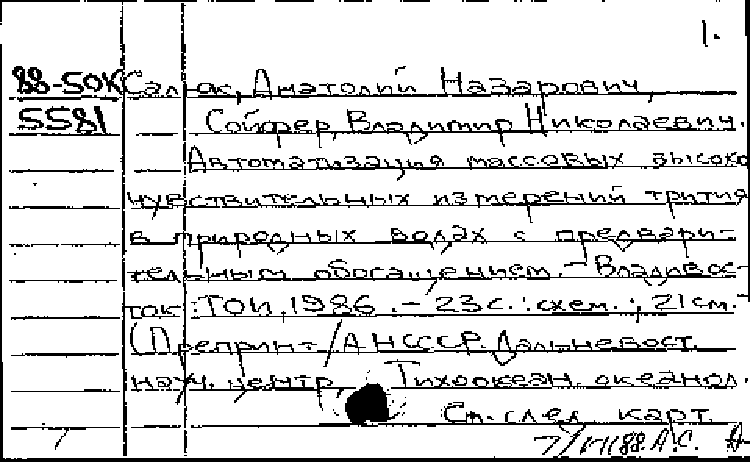 1.
88-50К Салюк, Анатолий Назарович,
5581 Сойфер, Владимир Николаевич.
Автоматизация массовых высоко
чувствительных измерений трития
в природных водах с предвари-
тельным обогащением. - Владивос-
ток : ТОИ, 1986. - 23 с. : схем. ; 21 см. -
(Препринт / АН СССР. Дальневост.
науч. центр. Тихоокеан. океанол.
См. след. карт.
88. А.С.